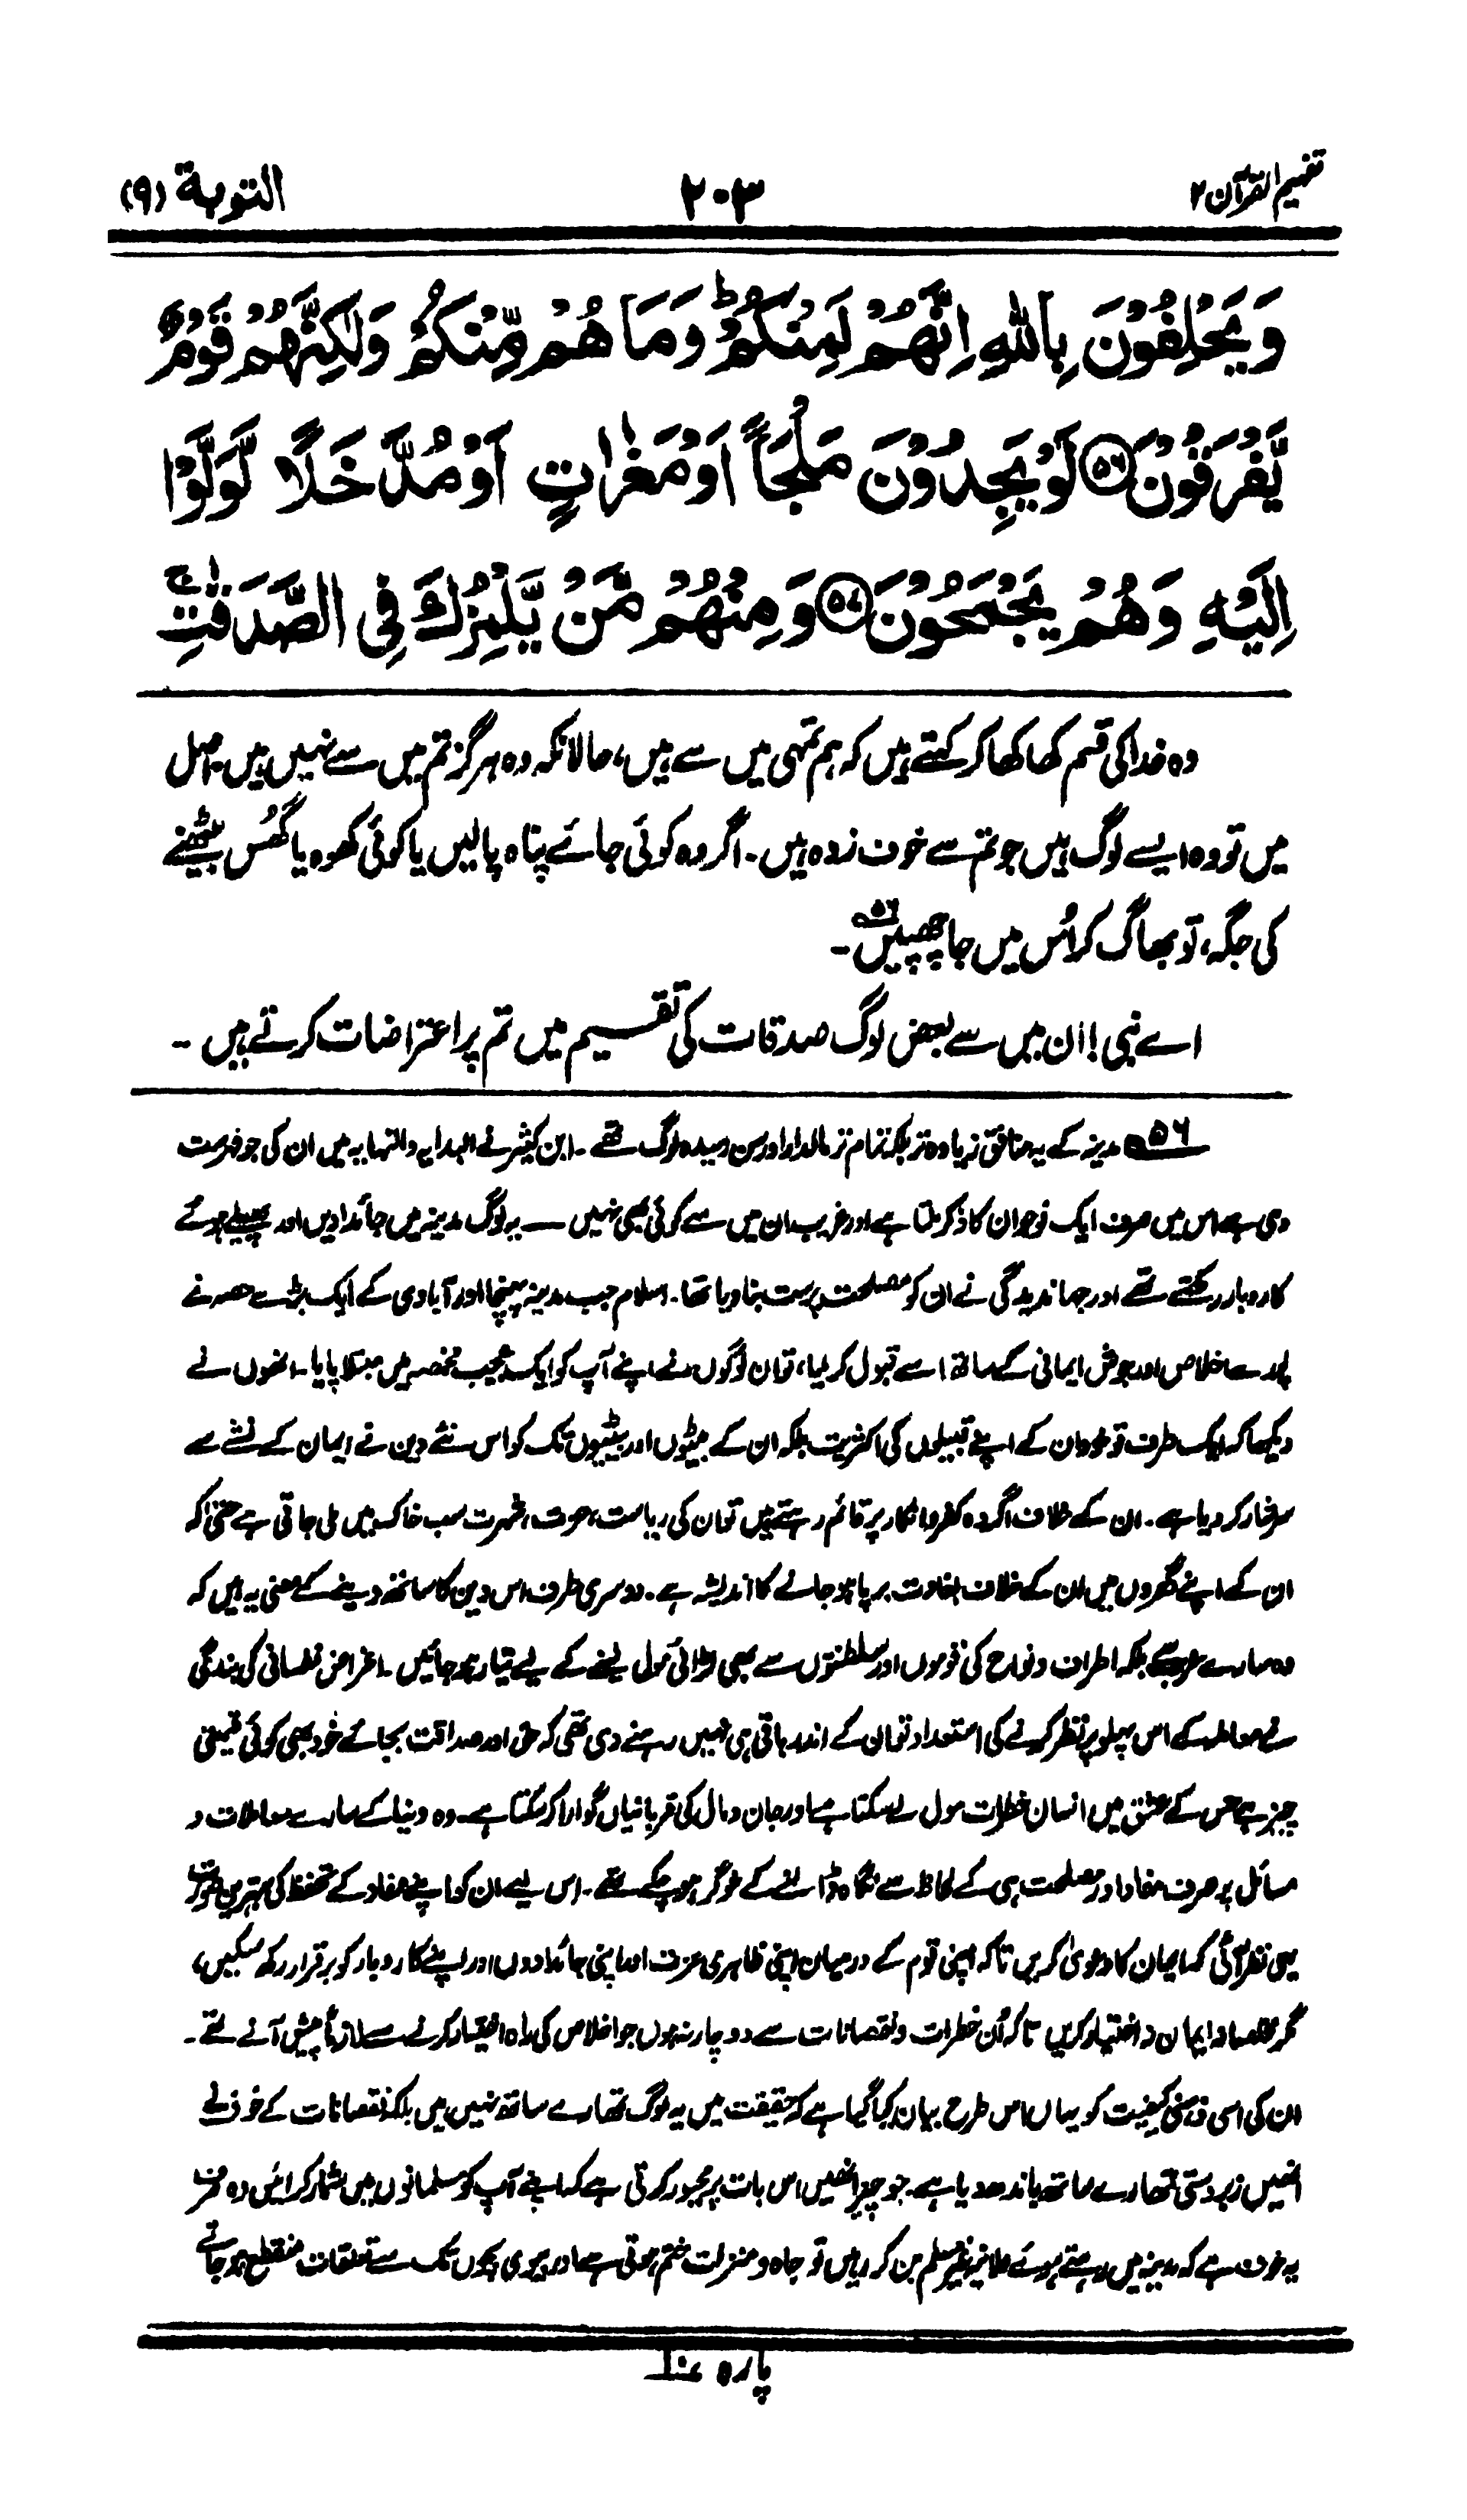 تفہیم القرآن ۲
۲۰۳
التوبة (۹)
وَيَحْلِفُوْنَ بِاللّٰهِ اِنَّهُمْ لَمِنْكُمْ ؕ وَمَا هُمْ مِّنْكُمْ وَلٰكِنَّهُمْ قَوْمٌ
يَّفْرَقُوْنَ ﴿۵۶﴾ لَوْ يَجِدُوْنَ مَلْجَاً اَوْ مَغٰرٰتٍ اَوْ مُدَّخَلًا لَّوَلَّوْا
اِلَيْهِ وَهُمْ يَجْمَحُوْنَ ﴿۵۷﴾ وَمِنْهُمْ مَّنْ يَّلْمِزُكَ فِى الصَّدَقٰتِ ۚ
وہ خدا کی قسم کھا کھا کر کہتے ہیں کہ ہم تمہی میں سے ہیں، حالانکہ وہ ہرگز تم میں سے نہیں ہیں۔ اصل
میں تو وہ ایسے لوگ ہیں جو تم سے خوف زدہ ہیں۔ اگر وہ کوئی جائے پناہ پالیں یا کوئی کھوہ یا گھُس بیٹھنے
کی جگہ، تو بھاگ کر اُس میں جا چھپیں۵۶۔
اے نبی! ان میں سے بعض لوگ صدقات کی تقسیم میں تم پر اعتراضات کرتے ہیں۔
۵۶ مدینہ کے یہ منافق زیادہ تر بلکہ تمام تر مالدار اور سن رسیدہ لوگ تھے۔ ابن کثیر نے البدایہ والنہایہ میں ان کی جو فہرست
دی ہے اس میں صرف ایک نوجوان کا ذکر ملتا ہے اور غریب ان میں سے کوئی بھی نہیں — یہ لوگ مدینہ میں جائدادیں اور پھیلے ہوئے
کاروبار رکھتے تھے اور جہاندیدگی نے ان کو مصلحت پرست بنا دیا تھا۔ اسلام جب مدینہ پہنچا اور آبادی کے ایک بڑے حصہ نے
پورے اخلاص اور جوش ایمانی کے ساتھ اسے قبول کر لیا، تو ان لوگوں نے اپنے آپ کو ایک عجیب مخمصہ میں مبتلا پایا۔ انھوں نے
دیکھا کہ ایک طرف تو خود ان کے اپنے قبیلوں کی اکثریت بلکہ ان کے بیٹوں اور بیٹیوں تک کو اس نئے دین نے ایمان کے نشے سے
سرشار کر دیا ہے۔ ان کے خلاف اگر وہ کفر و انکار پر قائم رہتے ہیں تو ان کی ریاست، عزت، شہرت سب خاک میں مل جاتی ہے حتیٰ کہ
ان کے اپنے گھروں میں ان کے خلاف بغاوت برپا ہو جانے کا اندیشہ ہے۔ دوسری طرف اس دین کا ساتھ دینے کے معنی یہ ہیں کہ
وہ سارے عرب سے بلکہ اطراف و نواح کی قوموں اور سلطنتوں سے بھی لڑائی مول لینے کے لیے تیار ہو جائیں۔ اغراض نفسانی کی بندگی
نے معاملہ کے اس پہلو پر نظر کرنے کی استعداد تو ان کے اندر باقی ہی نہیں رہنے دی تھی کہ حق اور صداقت بجائے خود بھی کوئی قیمتی
چیز ہے جس کے عشق میں انسان خطرات مول لے سکتا ہے اور جان و مال کی قربانیاں گوارا کر سکتا ہے۔ وہ دنیا کے سارے معاملات و
مسائل پر صرف مفاد اور مصلحت ہی کے لحاظ سے نگاہ ڈالنے کے خوگر ہو چکے تھے۔ اس لیے ان کو اپنے مفاد کے تحفظ کی بہترین صورت
یہی نظر آئی کہ ایمان کا دعویٰ کریں تاکہ اپنی قوم کے درمیان اپنی ظاہری عزت اور اپنی جائدادوں اور اپنے کاروبار کو برقرار رکھ سکیں،
مگر مخلصانہ ایمان نہ اختیار کریں تاکہ اُن خطرات و نقصانات سے دوچار نہ ہوں جو اخلاص کی راہ اختیار کرنے سے لازماً پیش آنے تھے۔
ان کی اسی ذہنی کیفیت کو یہاں اس طرح بیان کیا گیا ہے کہ حقیقت میں یہ لوگ تمھارے ساتھ نہیں ہیں بلکہ نقصانات کے خوف نے
انھیں زبردستی تمھارے ساتھ باندھ دیا ہے۔ جو چیز انھیں اس بات پر مجبور کرتی ہے کہ اپنے آپ کو مسلمانوں میں شمار کرائیں وہ صرف
یہ خوف ہے کہ مدینہ میں رہتے ہوئے علانیہ غیر مسلم بن کر رہیں تو جاہ و منزلت ختم ہوتی ہے اور بیوی بچوں تک سے تعلقات منقطع ہو جاتے
پارہ ۱۰